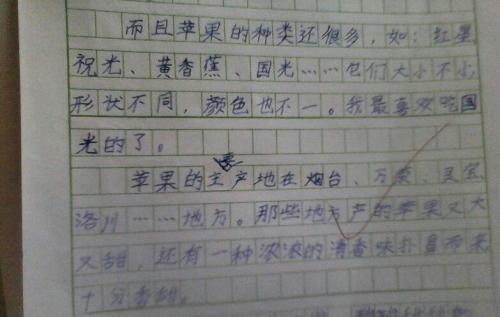 而且苹果的种类还很多，如：红星、
祝光、黄香蕉、国光……它们大小不小，
形状不同，颜色也不一。我最喜欢吃国
光的了。
苹果的主要产地在烟台、万荣、灵宝、
洛川……地方。那些地方产的苹果又大
又甜，还有一种浓浓的清香味扑鼻而来
十分香甜。